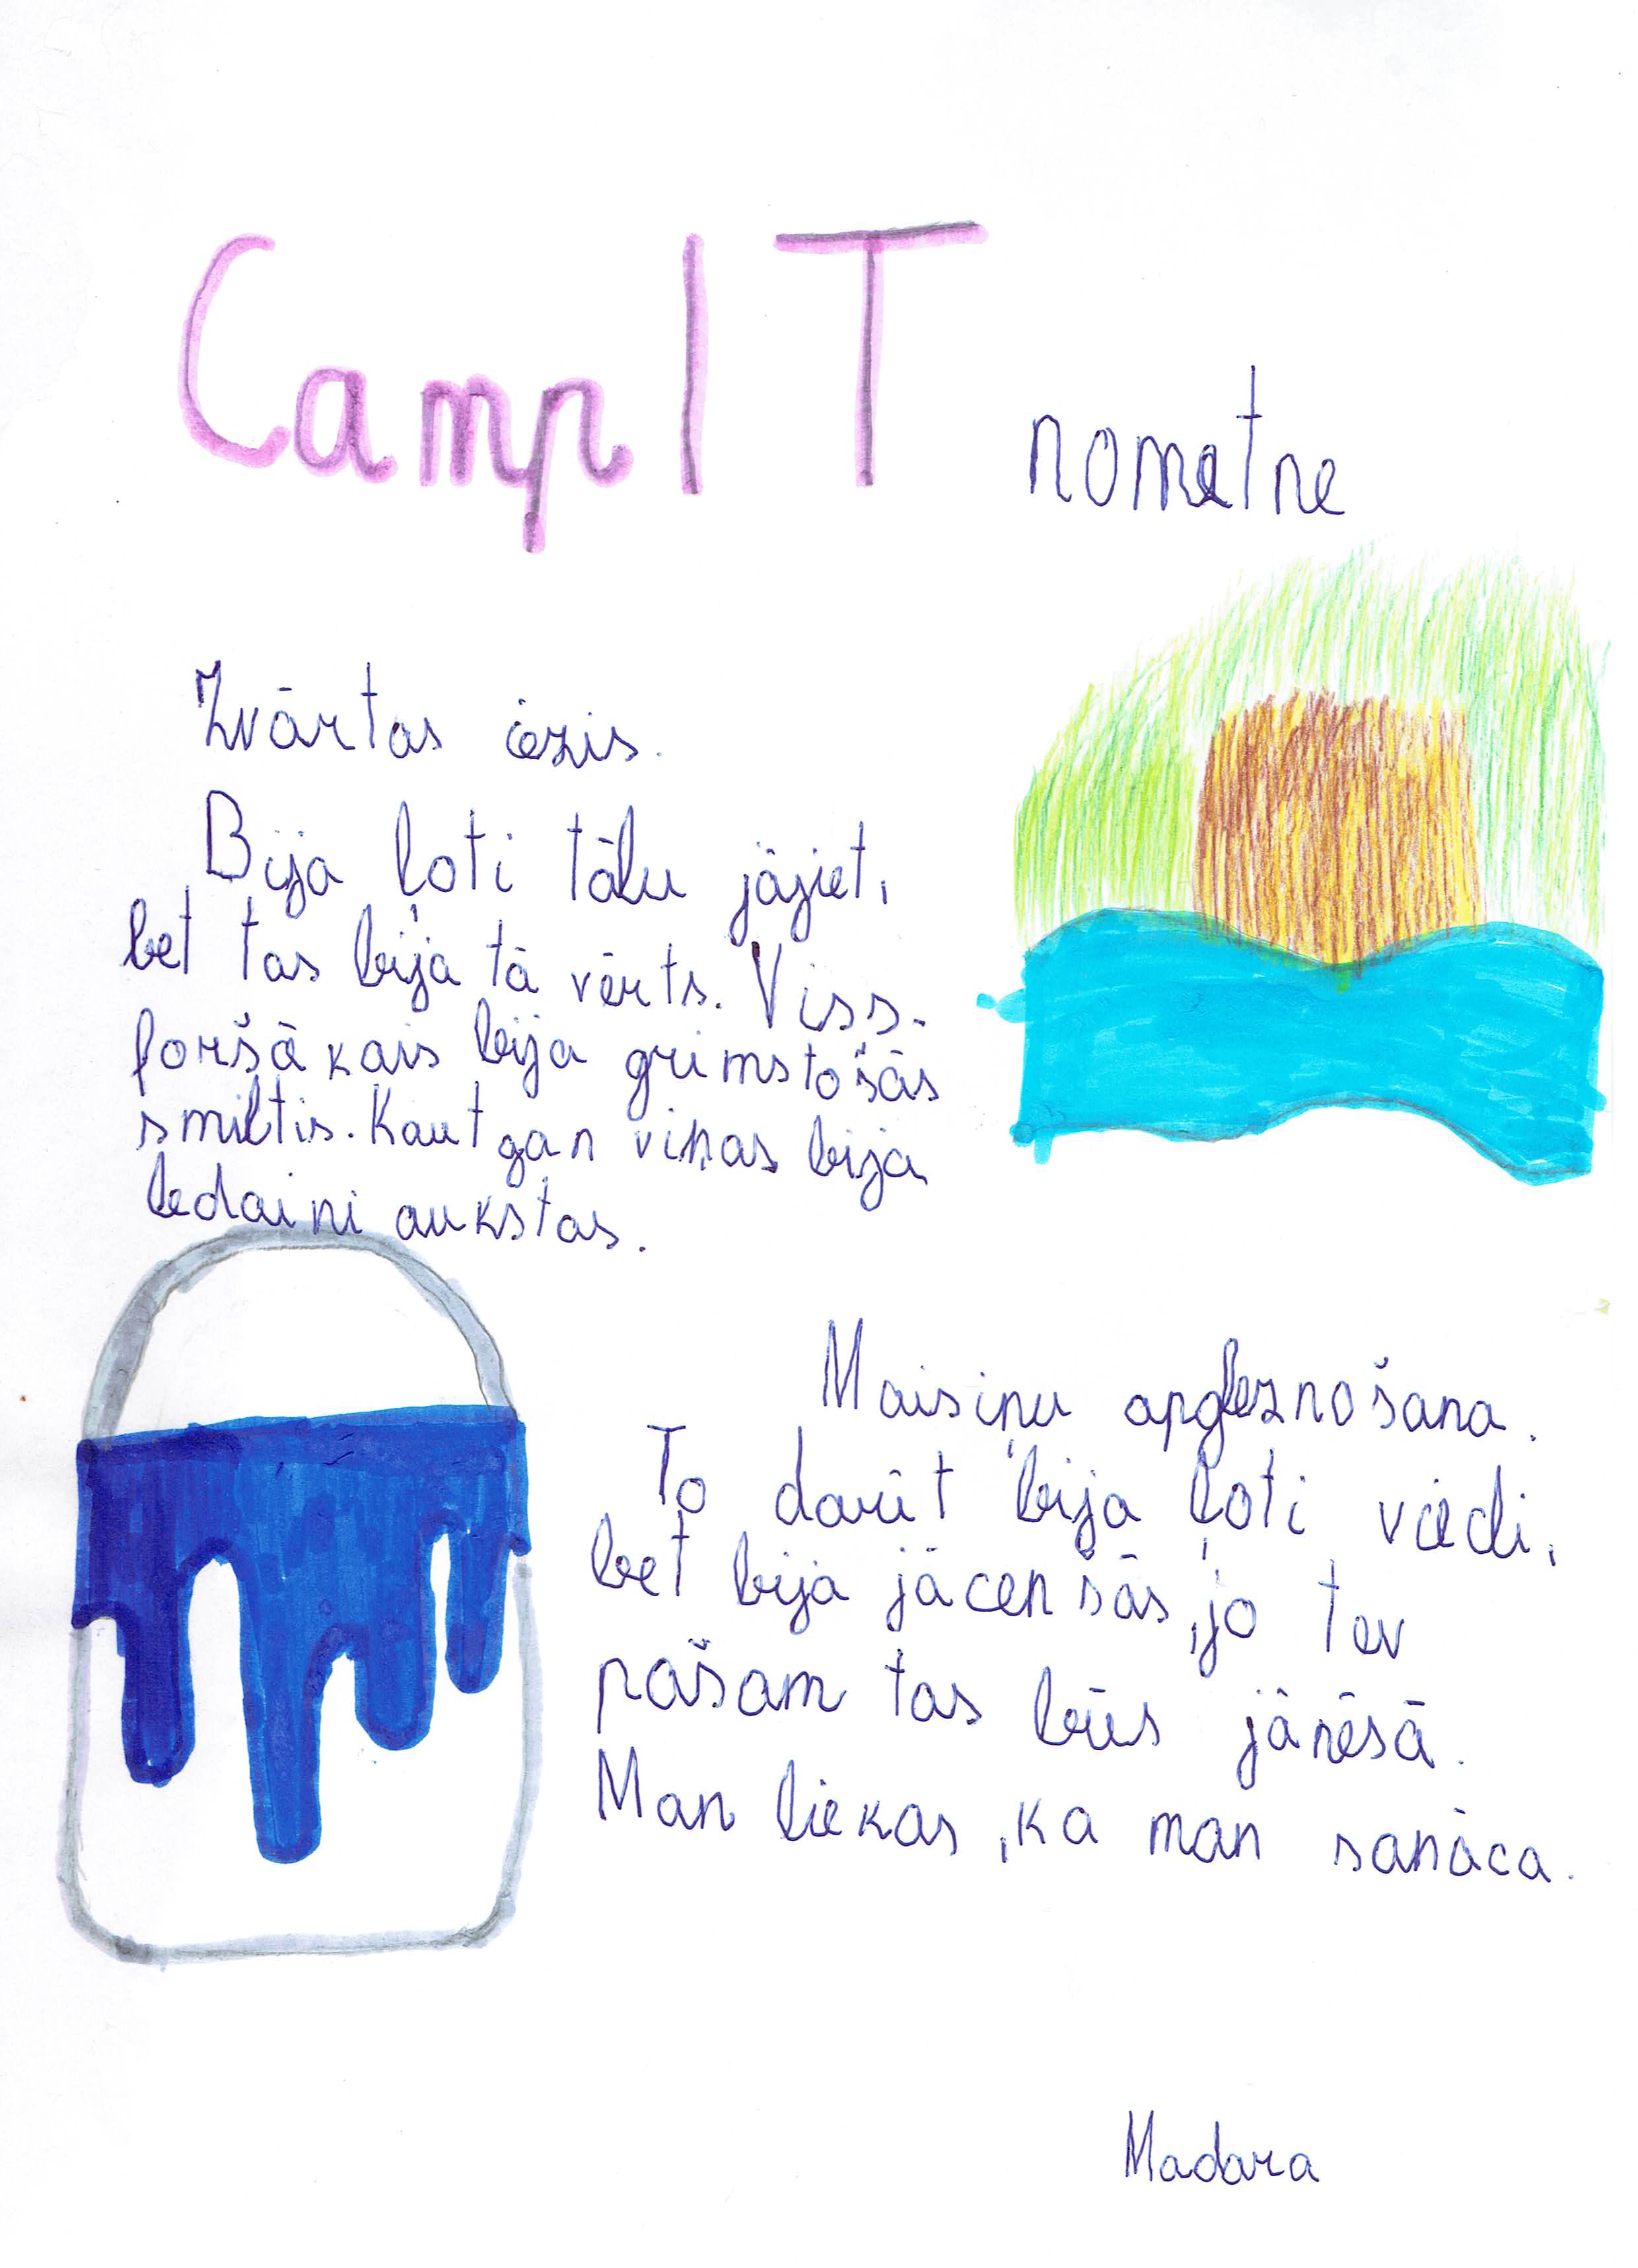 CampIT nometne
Zvārtas iezis.
Bija ļoti tālu jāiet,
bet tas bija tā vērts. Viss-
foršākais bija grimstošās
smiltis. Kaut gan viņas bija
ledaini aukstas.
Maisiņu apgleznošana.
To darīt bija ļoti viedi,
bet bija jācenšās, jo tev
pašam tas būs jānēsā.
Man liekas, ka man sanāca.
Madara